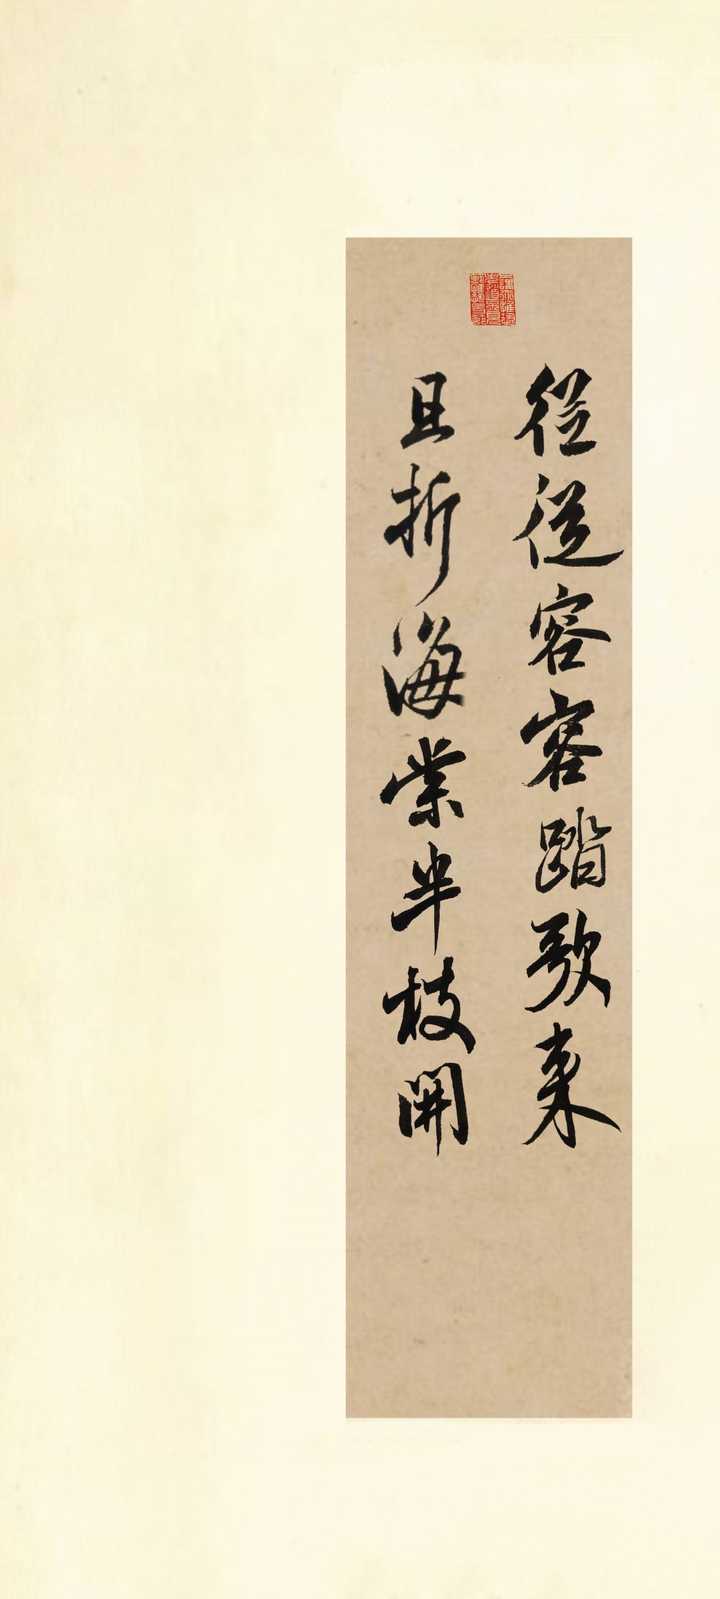 從從容容踏歌來
且折海棠半枝開